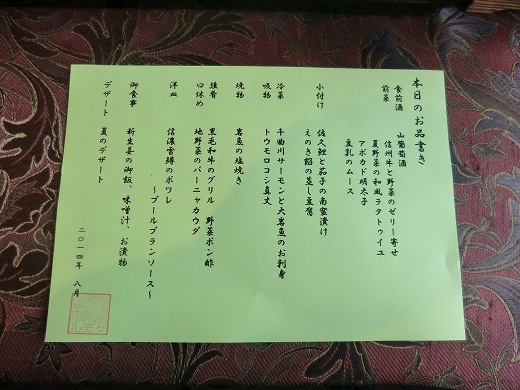 本日のお品書き
食前酒 山葡萄酒
前菜 信州牛と野菜のゼリー寄せ
夏野菜の和風ラタトゥイユ
アボカド明太子
豆乳のムース
小付け 佐久鯉と茄子の南蛮漬け
えのき餡の蒸し豆腐
冷菜 千曲川サーモンと大岩魚のお刺身
吸物 トウモロコシ真丈
焼物 岩魚の塩焼き
強肴 黒毛和牛のグリル 野菜ポン酢
口休め 地野菜のバーニャカウダ
洋皿 信濃雪鱒のポワレ
~ブールブランソース~
御食事 新生姜の御飯、味噌汁、お漬物
デザート 夏のデザート
二〇一四年 八月